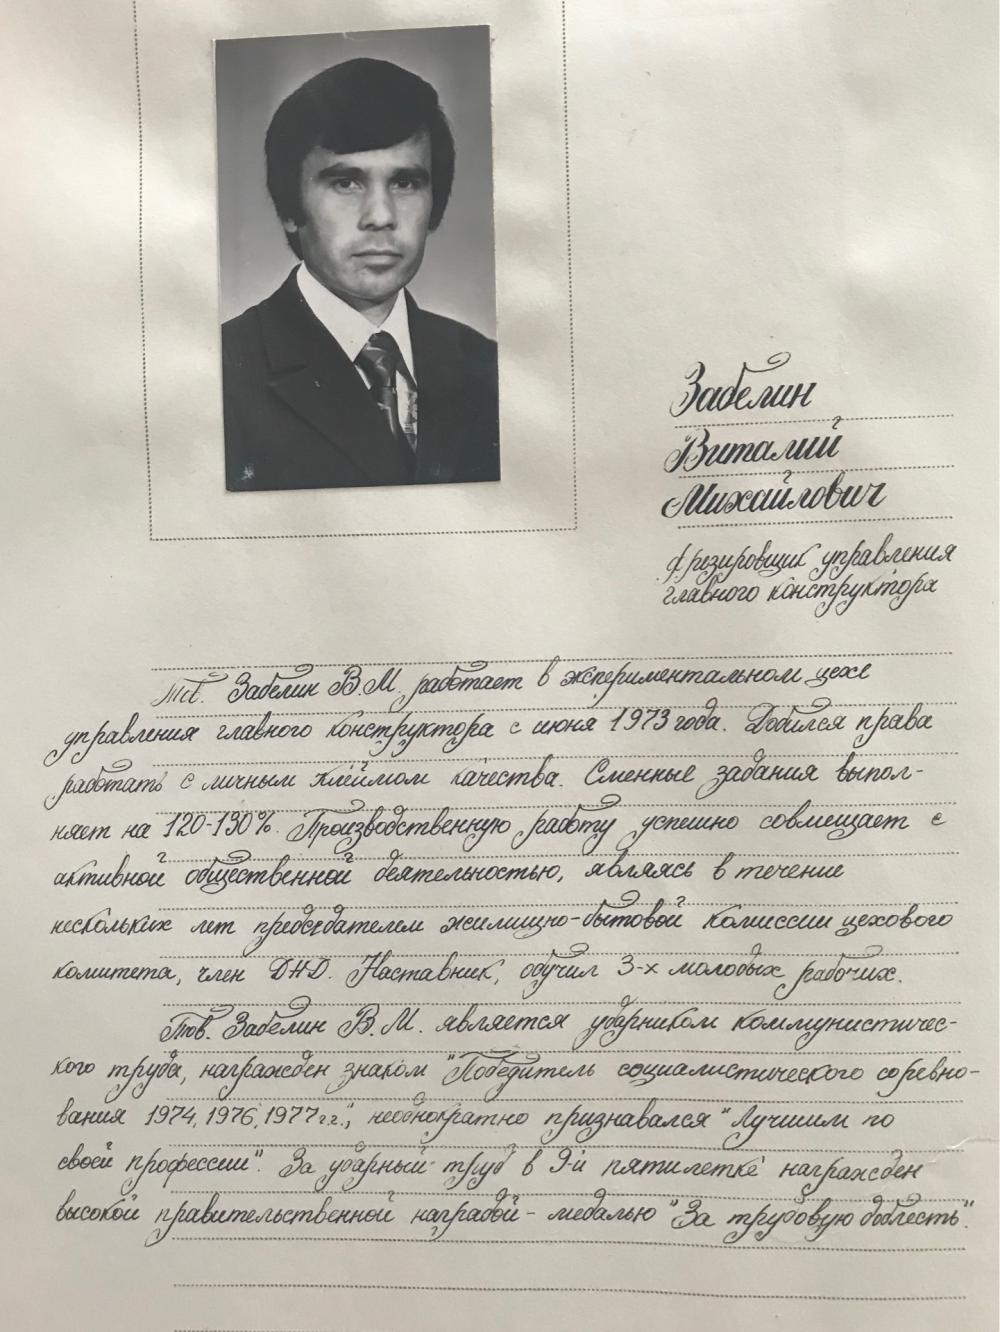 Забелин
Виталий
Михайлович
фрезировщик управления
главного конструктора
Тов. Забелин В.М. работает в экспериментальном цехе
управления главного конструктора с июня 1973 года. Добился права
работать с личным клеймом качества. Сменные задания выпол-
няет на 120-130%. Производственную работу успешно совмещает с
активной общественной деятельностью, являясь в течение
нескольких лет председателем жилищно-бытовой комиссии цехового
комитета, член ДНД. Наставник, обучил 3-х молодых рабочих.
Тов. Забелин В.М. является ударником коммунистичес-
кого труда, награжден знаком "Победитель социалистического соревно-
вания 1974, 1976, 1977 г.г.", неоднократно признавался "Лучшим по
своей профессии". За ударный труд в 9-й пятилетке награжден
высокой правительственной наградой - медалью "За трудовую доблесть".